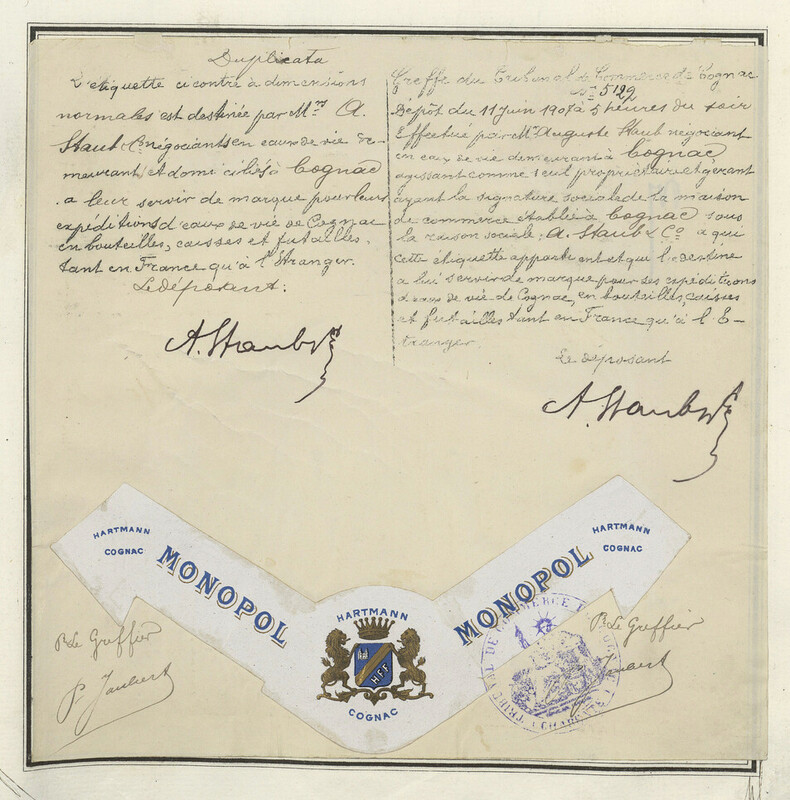 Duplicata
L'etiquette ci contre à dimensions
normales est destinée par Mrs A.
Staub & Co négociants en eaux de vie de-
meurant et domiciliés à Cognac
a leur servir de marque pour leurs
expéditions d'eaux de vie de Cognac
en bouteilles, caisses et futailles,
tant en France qu'à l'Etranger.
Le déposant:
A. Staub & Co
Greffe du Tribunal de Commerce de Cognac
No 5129
Dépôt du 11 Juin 1907 à 5 heures du soir
Effectué par Mr Auguste Staub négociant
en eaux de vie demeurant à Cognac
agissant comme seul propriétaire et gérant
ayant la signature sociale de la maison
de commerce établie à Cognac sous
la raison sociale: A. Staub & Co a qui
cette etiquette appartient et qui l'a destine
a lui servir de marque pour ses expéditions
d'eaux de vie de Cognac, en bouteilles, caisses
et futailles tant en France qu'à l'E-
tranger.
Le déposant
A. Staub & Co
HARTMANN
COGNAC
MONOPOL
HARTMANN
HFF
COGNAC
MONOPOL
HARTMANN
COGNAC
P. Le Greffier
P. Le Greffier
TRIBUNAL DE COMMERCE DE COGNAC